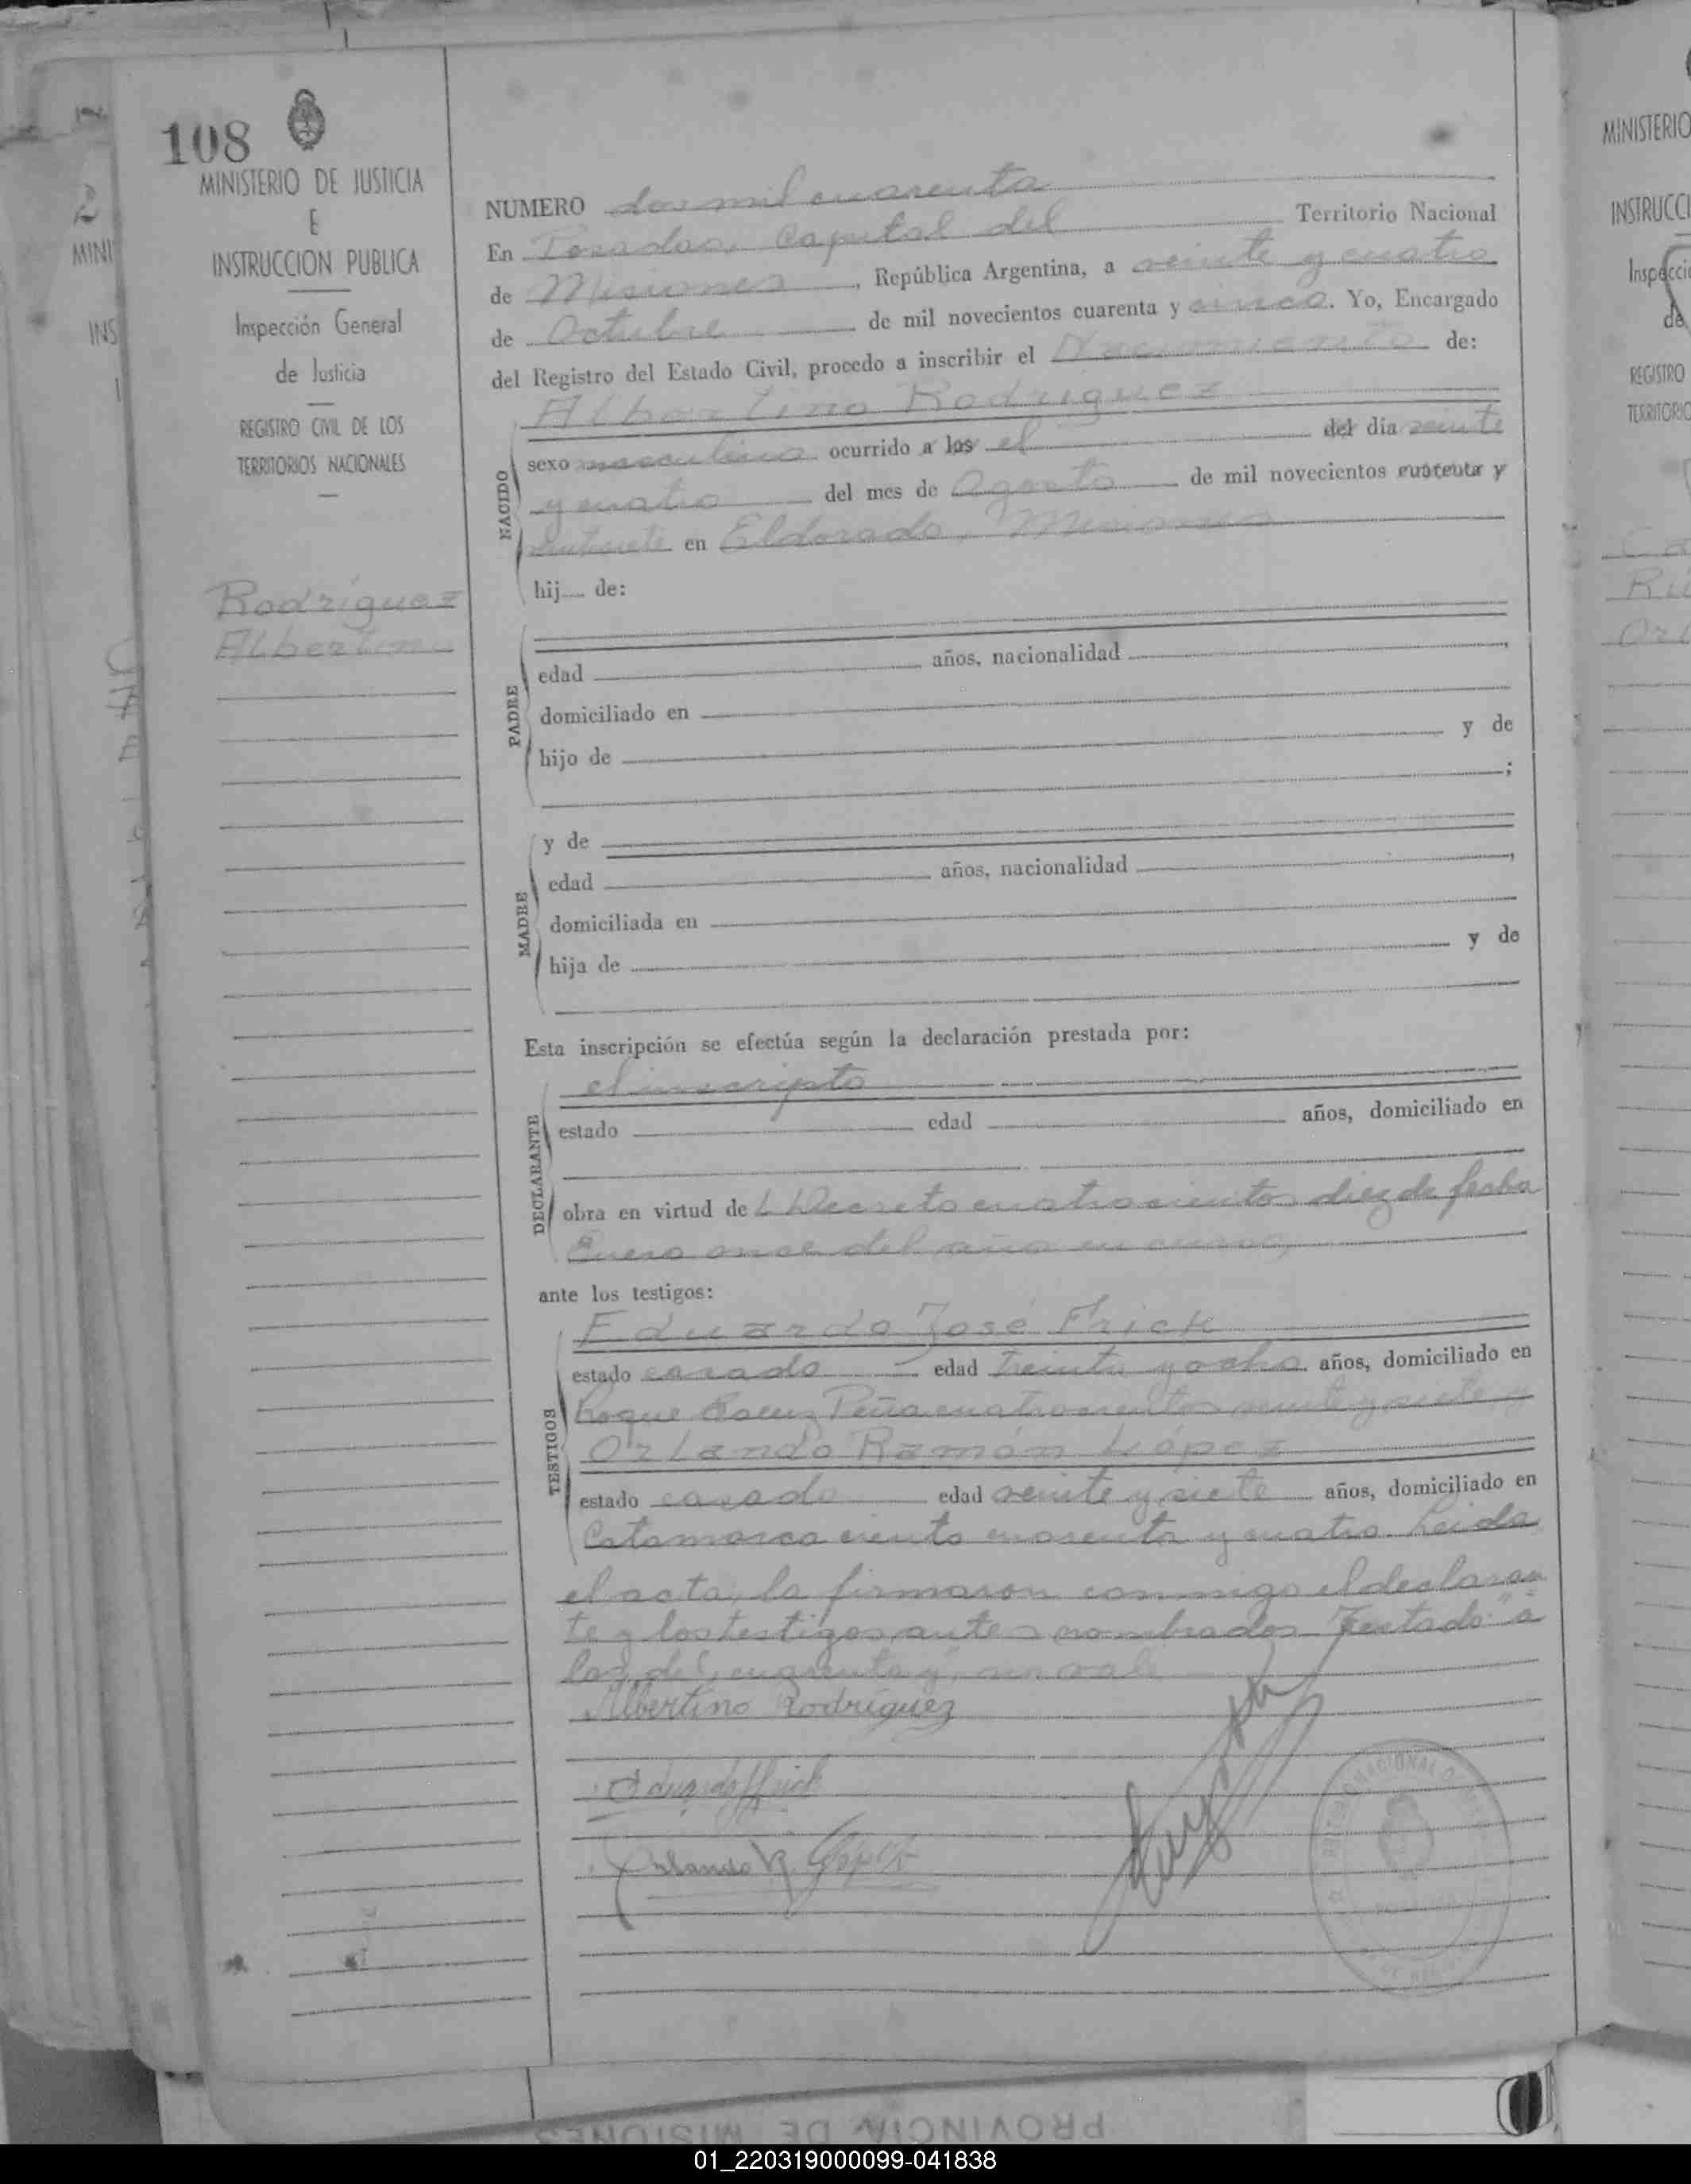 108
MINISTERIO DE JUSTICIA
E
INSTRUCCION PUBLICA
Inspección General
de Justicia
REGISTRO CIVIL DE LOS
TERRITORIOS NACIONALES
Rodríguez
Albertino
NUMERO dos mil cuarenta
En Posadas, Capital del Territorio Nacional
de Misiones, República Argentina, a veinte y cuatro
de Octubre de mil novecientos cuarenta y cinco. Yo, Encargado
del Registro del Estado Civil, procedo a inscribir el Nacimiento de:
Albertino Rodríguez
NACIDO
sexo masculino ocurrido a las el del día veinte
y cuatro del mes de Agosto de mil novecientos cuarenta y
en Eldorado, Misiones
hij de:
PADRE
edad años, nacionalidad
domiciliado en
hijo de y de
;
MADRE
y de
edad años, nacionalidad
domiciliada en
hija de y de
Esta inscripción se efectúa según la declaración prestada por:
DECLARANTE
el inscripto
estado edad años, domiciliado en
obra en virtud del Decreto cuatrocientos diez de fecha
Enero once del año en curso,
ante los testigos:
TESTIGOS
Eduardo José Frick
estado casado edad treinta y ocho años, domiciliado en
Roque Saenz Peña cuatrocientos veinte y siete y
Orlando Ramón López
estado casado edad veinte y siete años, domiciliado en
Catamarca ciento cuarenta y cuatro. Leida
el acta, la firmaron conmigo el declaran
te y los testigos antes nombrados. Testado: "a
las, del, cuarenta y", no vale
Albertino Rodríguez
Eduardo J Frick
Orlando R. López
MINISTERIO
INSTRUCCI
REGISTRO
TERRITORIO
MINI
INS
PROVINCIA DE MISIONES
01_220319000099-041838